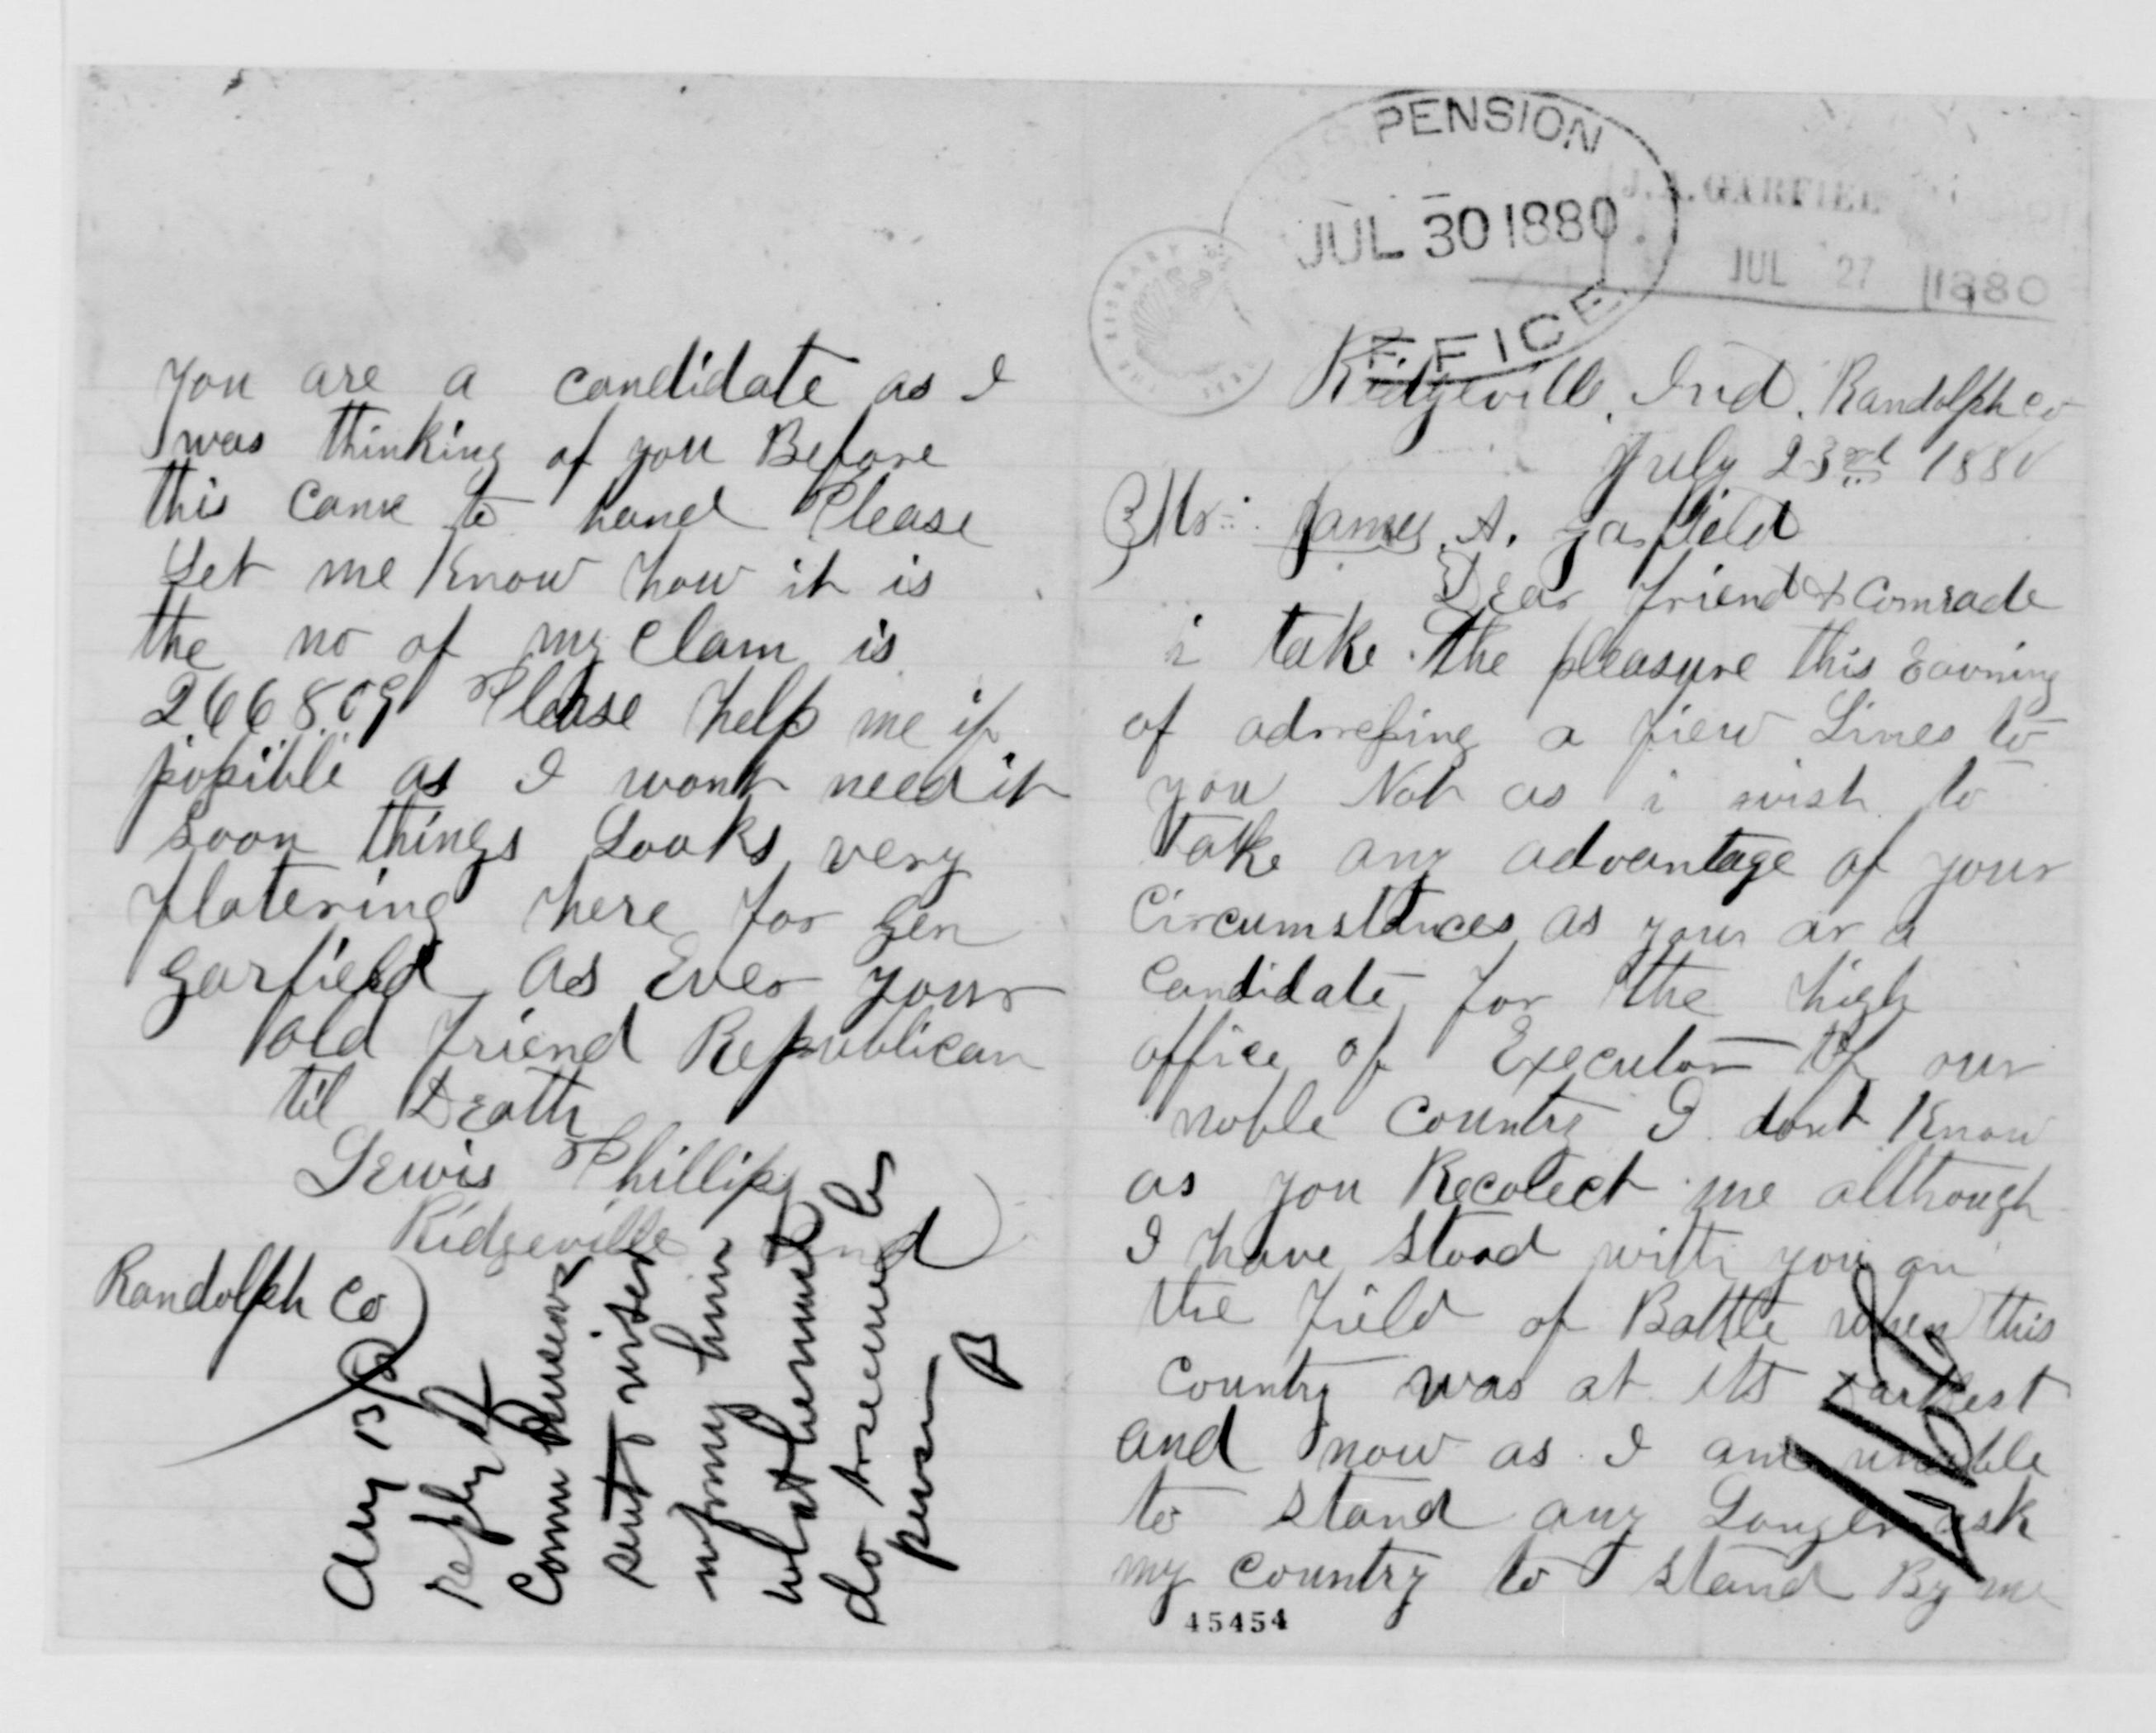 PENSION
JUL 30 1880
OFFICE
J. A. GARFIEL
JUL 27 1880
Ridgeville, Ind. Randolph co
July 23rd 1880
Mr: James. A. Garfield
Dear friend & Comrade
i take the pleasure this Eavning
of adressing a fiew Lines to
you Not as i wish to
take any advantage of your
Circumstances as your ar a
Candidate for the high
office of Executor of our
noble Country I dont Know
as you Recolect me although
I have stood with you on
the field of Battle when this
Country was at its darkest
and now as I am unable
to stand any Longer ask
my country to stand By me
45454
you are a candidate as I
was thinking of you Before
this came to hand Please
Let me Know how it is
the no of my Clam is
266809 Please help me if
possible as I wont need it
soon things Looks very
flatering here for Gen
Garfield As Ever your
old friend Republican
til Death
Lewis Phillips
Ridgeville Ind
Randolph Co
Aug 13/80
reply
Comr
sent
him
what he must
do to secure his
pension
B